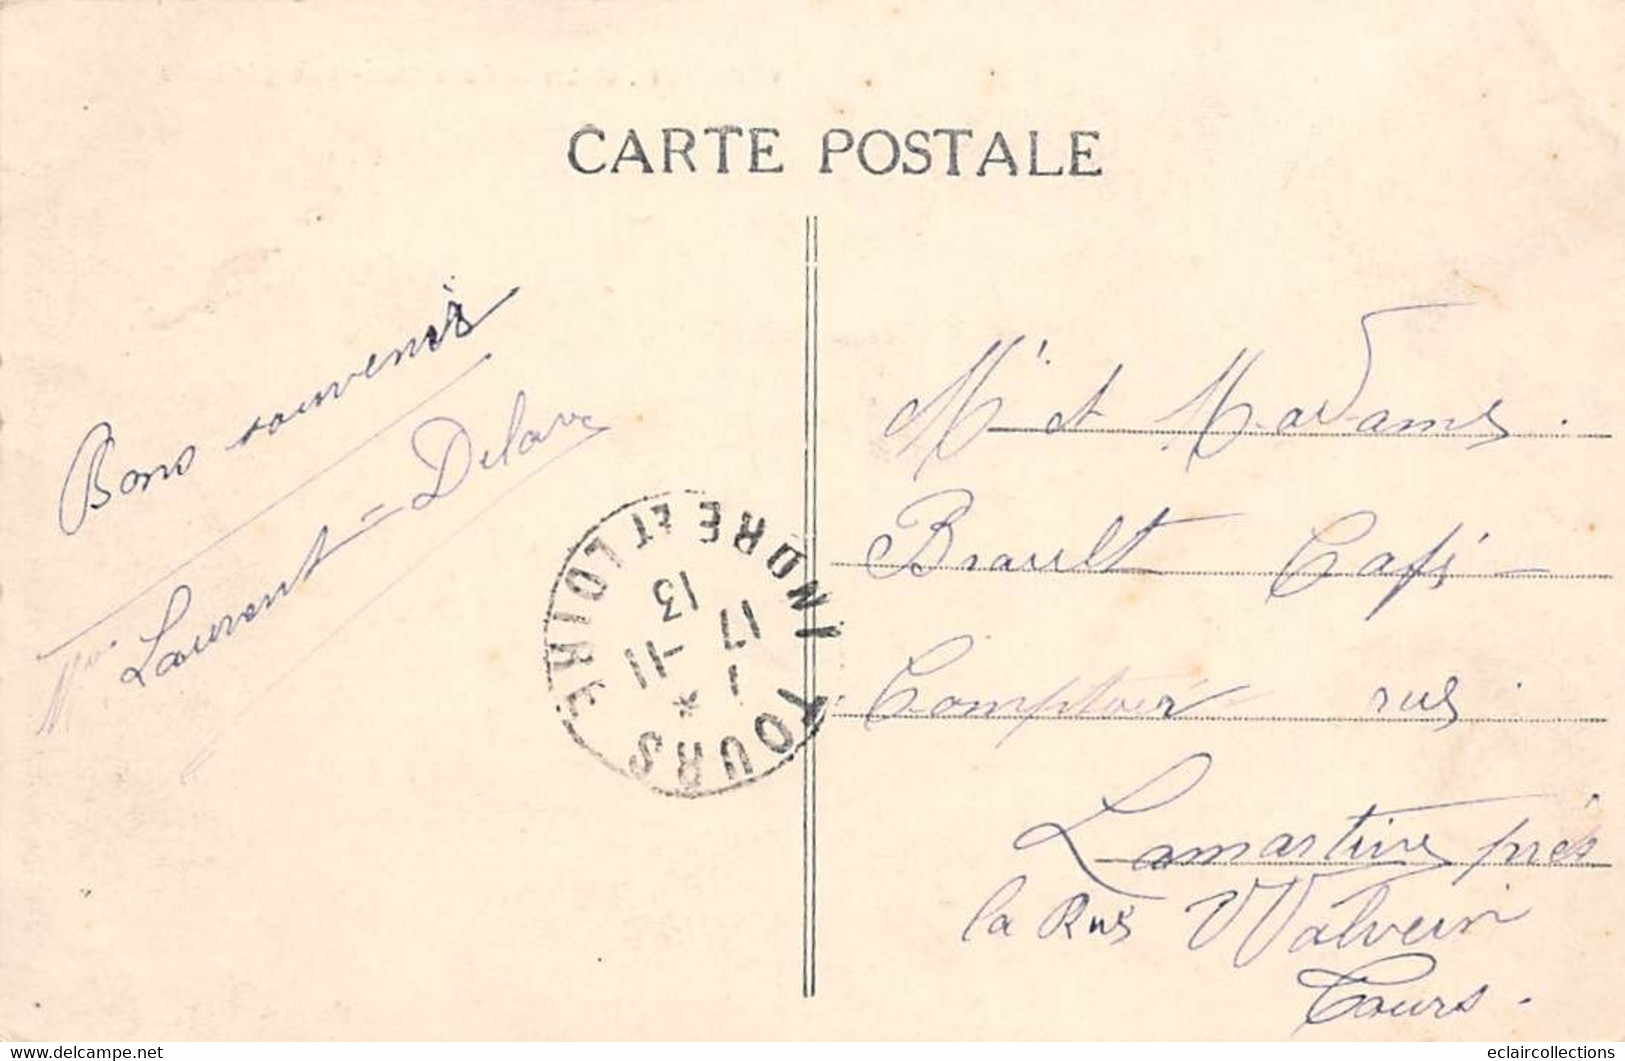 CARTE POSTALE
Bons souvenir
Laurent = Delav
TOURS INDRE ET LOIRE
17 1
13 -11
*
Mr et Madame
Brault Café
Comptoir rue
Lamartine près
la Rue Walvein
Tours.
eclaircollections